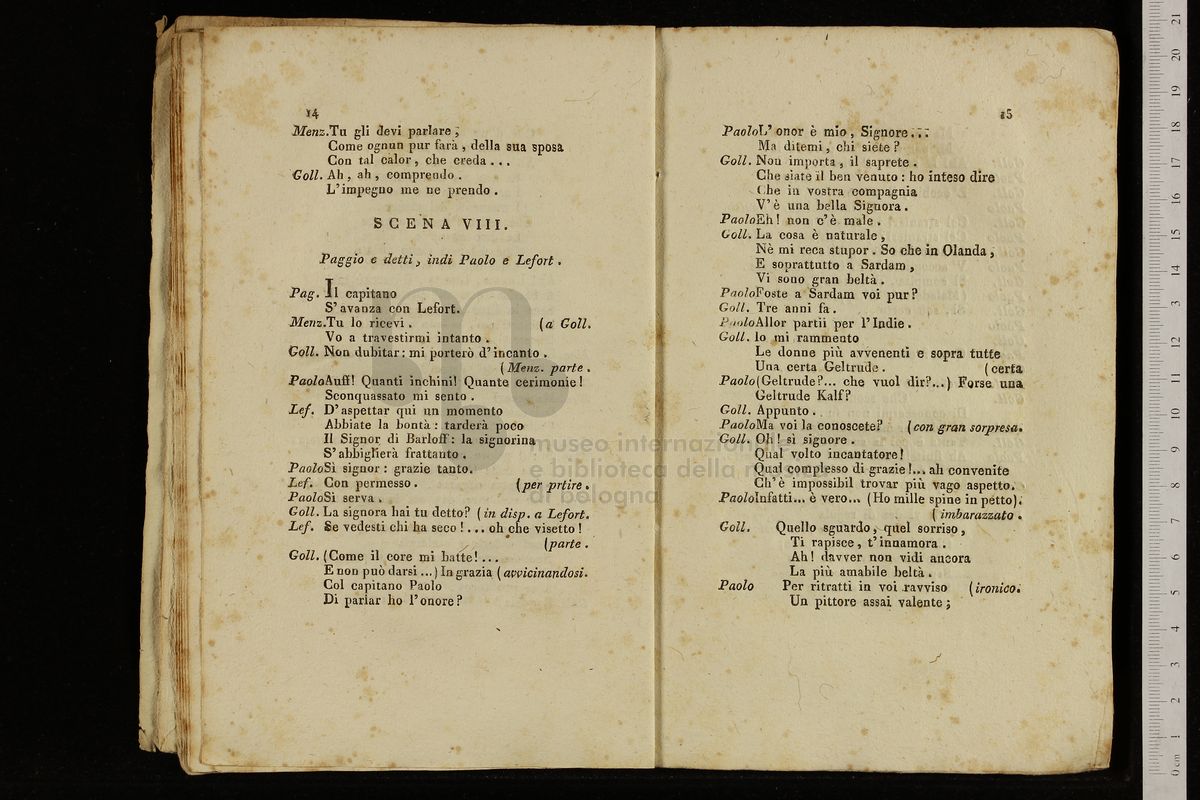 14
Menz. Tu gli devi parlare,
Come ognun pur farà, della sua sposa
Con tal calor, che creda...
Goll. Ah, ah, comprendo.
L'impegno me ne prendo.
SCENA VIII.
Paggio e detti, indi Paolo e Lefort.
Pag. Il capitano
S'avanza con Lefort.
Menz. Tu lo ricevi. (a Goll.
Vo a travestirmi intanto.
Goll. Non dubitar: mi porterò d'incanto.
(Menz. parte.
Paolo Auff! Quanti inchini! Quante cerimonie!
Sconquassato mi sento.
Lef. D'aspettar qui un momento
Abbiate la bontà: tarderà poco
Il Signor di Barloff: la signorina
S'abbiglierà frattanto.
Paolo Sì signor: grazie tanto.
Lef. Con permesso. (per prtire.
Paolo Si serva.
Goll. La signora hai tu detto? (in disp. a Lefort.
Lef. Se vedesti chi ha seco!... oh che visetto!
(parte.
Goll. (Come il core mi batte!...
E non può darsi...) In grazia (avvicinandosi.
Col capitano Paolo
Di parlar ho l'onore?
15
Paolo L'onor è mio, Signore...
Ma ditemi, chi siete?
Goll. Non importa, il saprete.
Che siate il ben venuto: ho inteso dire
Che in vostra compagnia
V'è una bella Signora.
Paolo Eh! non c'è male.
Goll. La cosa è naturale,
Nè mi reca stupor. So che in Olanda,
E soprattutto a Sardam,
Vi sono gran beltà.
Paolo Foste a Sardam voi pur?
Goll. Tre anni fa.
Paolo Allor partii per l'Indie.
Goll. Io mi rammento
Le donne più avvenenti e sopra tutte
Una certa Geltrude. (certa
Paolo (Geltrude?... che vuol dir?...) Forse una
Geltrude Kalf?
Goll. Appunto.
Paolo Ma voi la conoscete? (con gran sorpresa.
Goll. Oh! sì signore.
Qual volto incantatore!
Qual complesso di grazie!... ah convenite
Ch'è impossibil trovar più vago aspetto.
Paolo Infatti... è vero... (Ho mille spine in petto).
(imbarazzato.
Goll. Quello sguardo, quel sorriso,
Ti rapisce, t'innamora.
Ah! davver non vidi ancora
La più amabile beltà.
Paolo Per ritratti in voi ravviso (ironico.
Un pittore assai valente;
museo internazionale
e biblioteca della musica
di bologna
0 cm 1 2 3 4 5 6 7 8 9 10 11 12 13 14 15 16 17 18 19 20 21